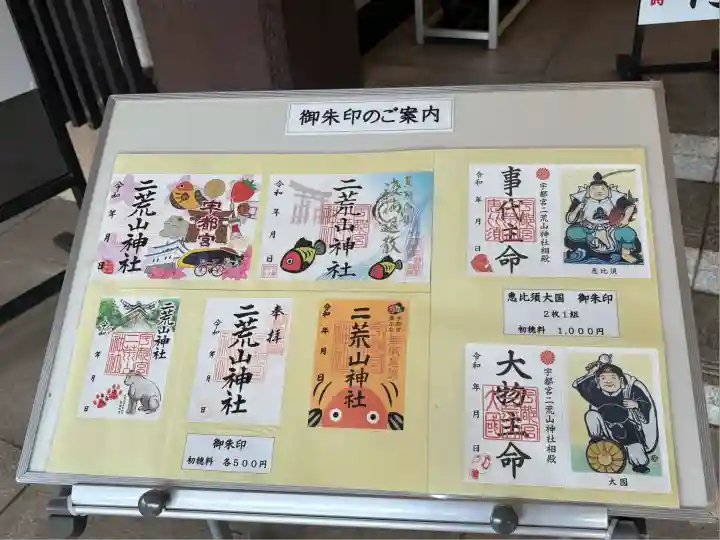 御朱印のご案内
二荒山神社
宇都宮
令和 年 月 日
二荒山神社
令和 年 月 日
事代主命
宇都宮二荒山神社相殿
令和 年 月 日
恵比須
恵比須大国 御朱印
2枚1組
初穂料 1,000円
二荒山神社
令和 年 月 日
奉拝
二荒山神社
令和 年 月 日
二荒山神社
令和 年 月 日
御朱印
初穂料 各500円
大物主命
宇都宮二荒山神社相殿
令和 年 月 日
大国